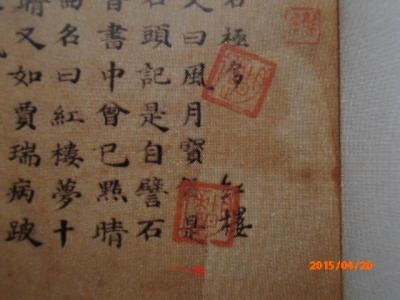 極多 紅樓
又曰風月寶是
石頭記是自譬石
書中曾已點睛
曲名曰紅樓夢十
睛又如賈瑞病跛
2015/04/20